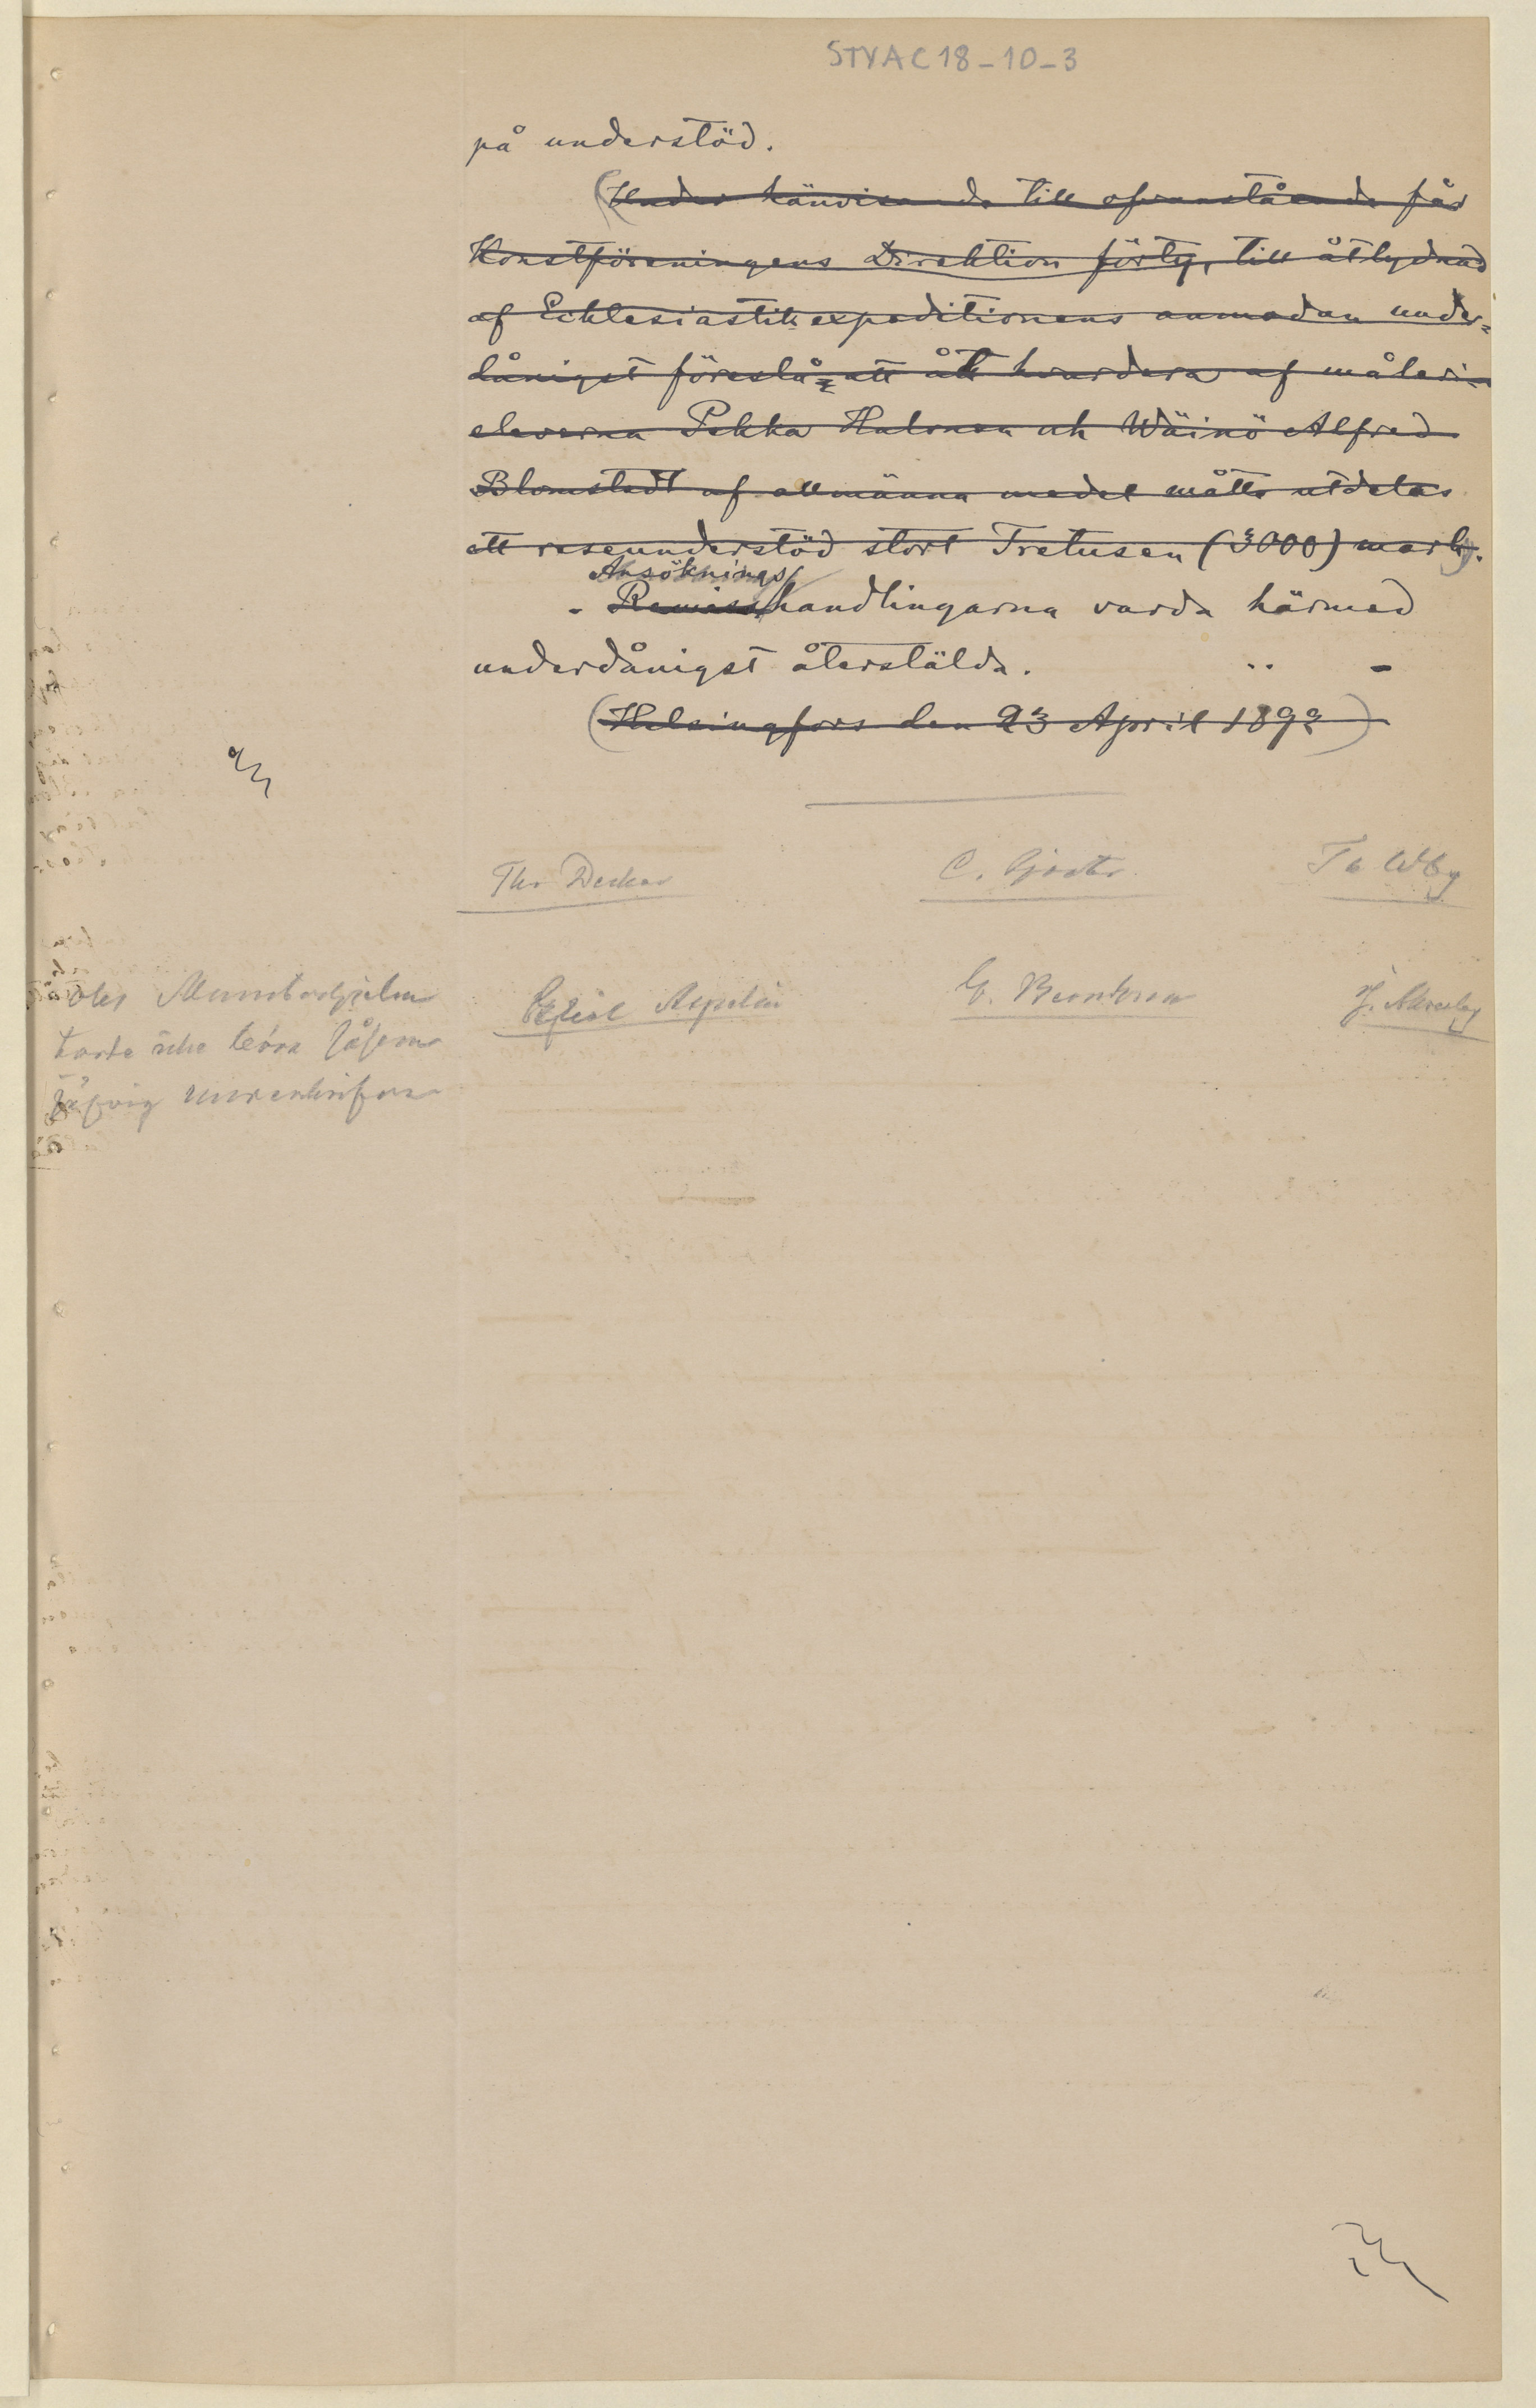 STYAC18-10-3
på understöd.
(Under hänvisande till ofvanstående får
Konstföreningens Direktion förty, till åtlydnad
af Ecklesiastikexpeditionens anmodan under=
dånigst föreslå, att åt hvardera af måleri-
eleverna Pekka Halonen och Wäinö Alfred
Blomstedt af allmänna medel måtte utdelas
ett reseunderstöd stort Tretusen (3000) mark).
Ansöknings
- Remisshandlingarna varda härmed
underdånigst återstälda.
(Helsingfors den 23 April 1892)
Thr Decker
C. Aspelin
ola Munsterhjelm
torde icke böra såsom
jäfvig underskrifva